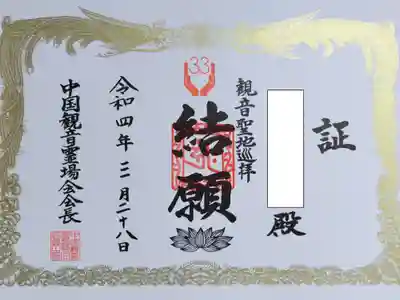 証
殿
観音聖地巡拝
33
結願
令和四年三月二十八日
中国観音霊場会会長